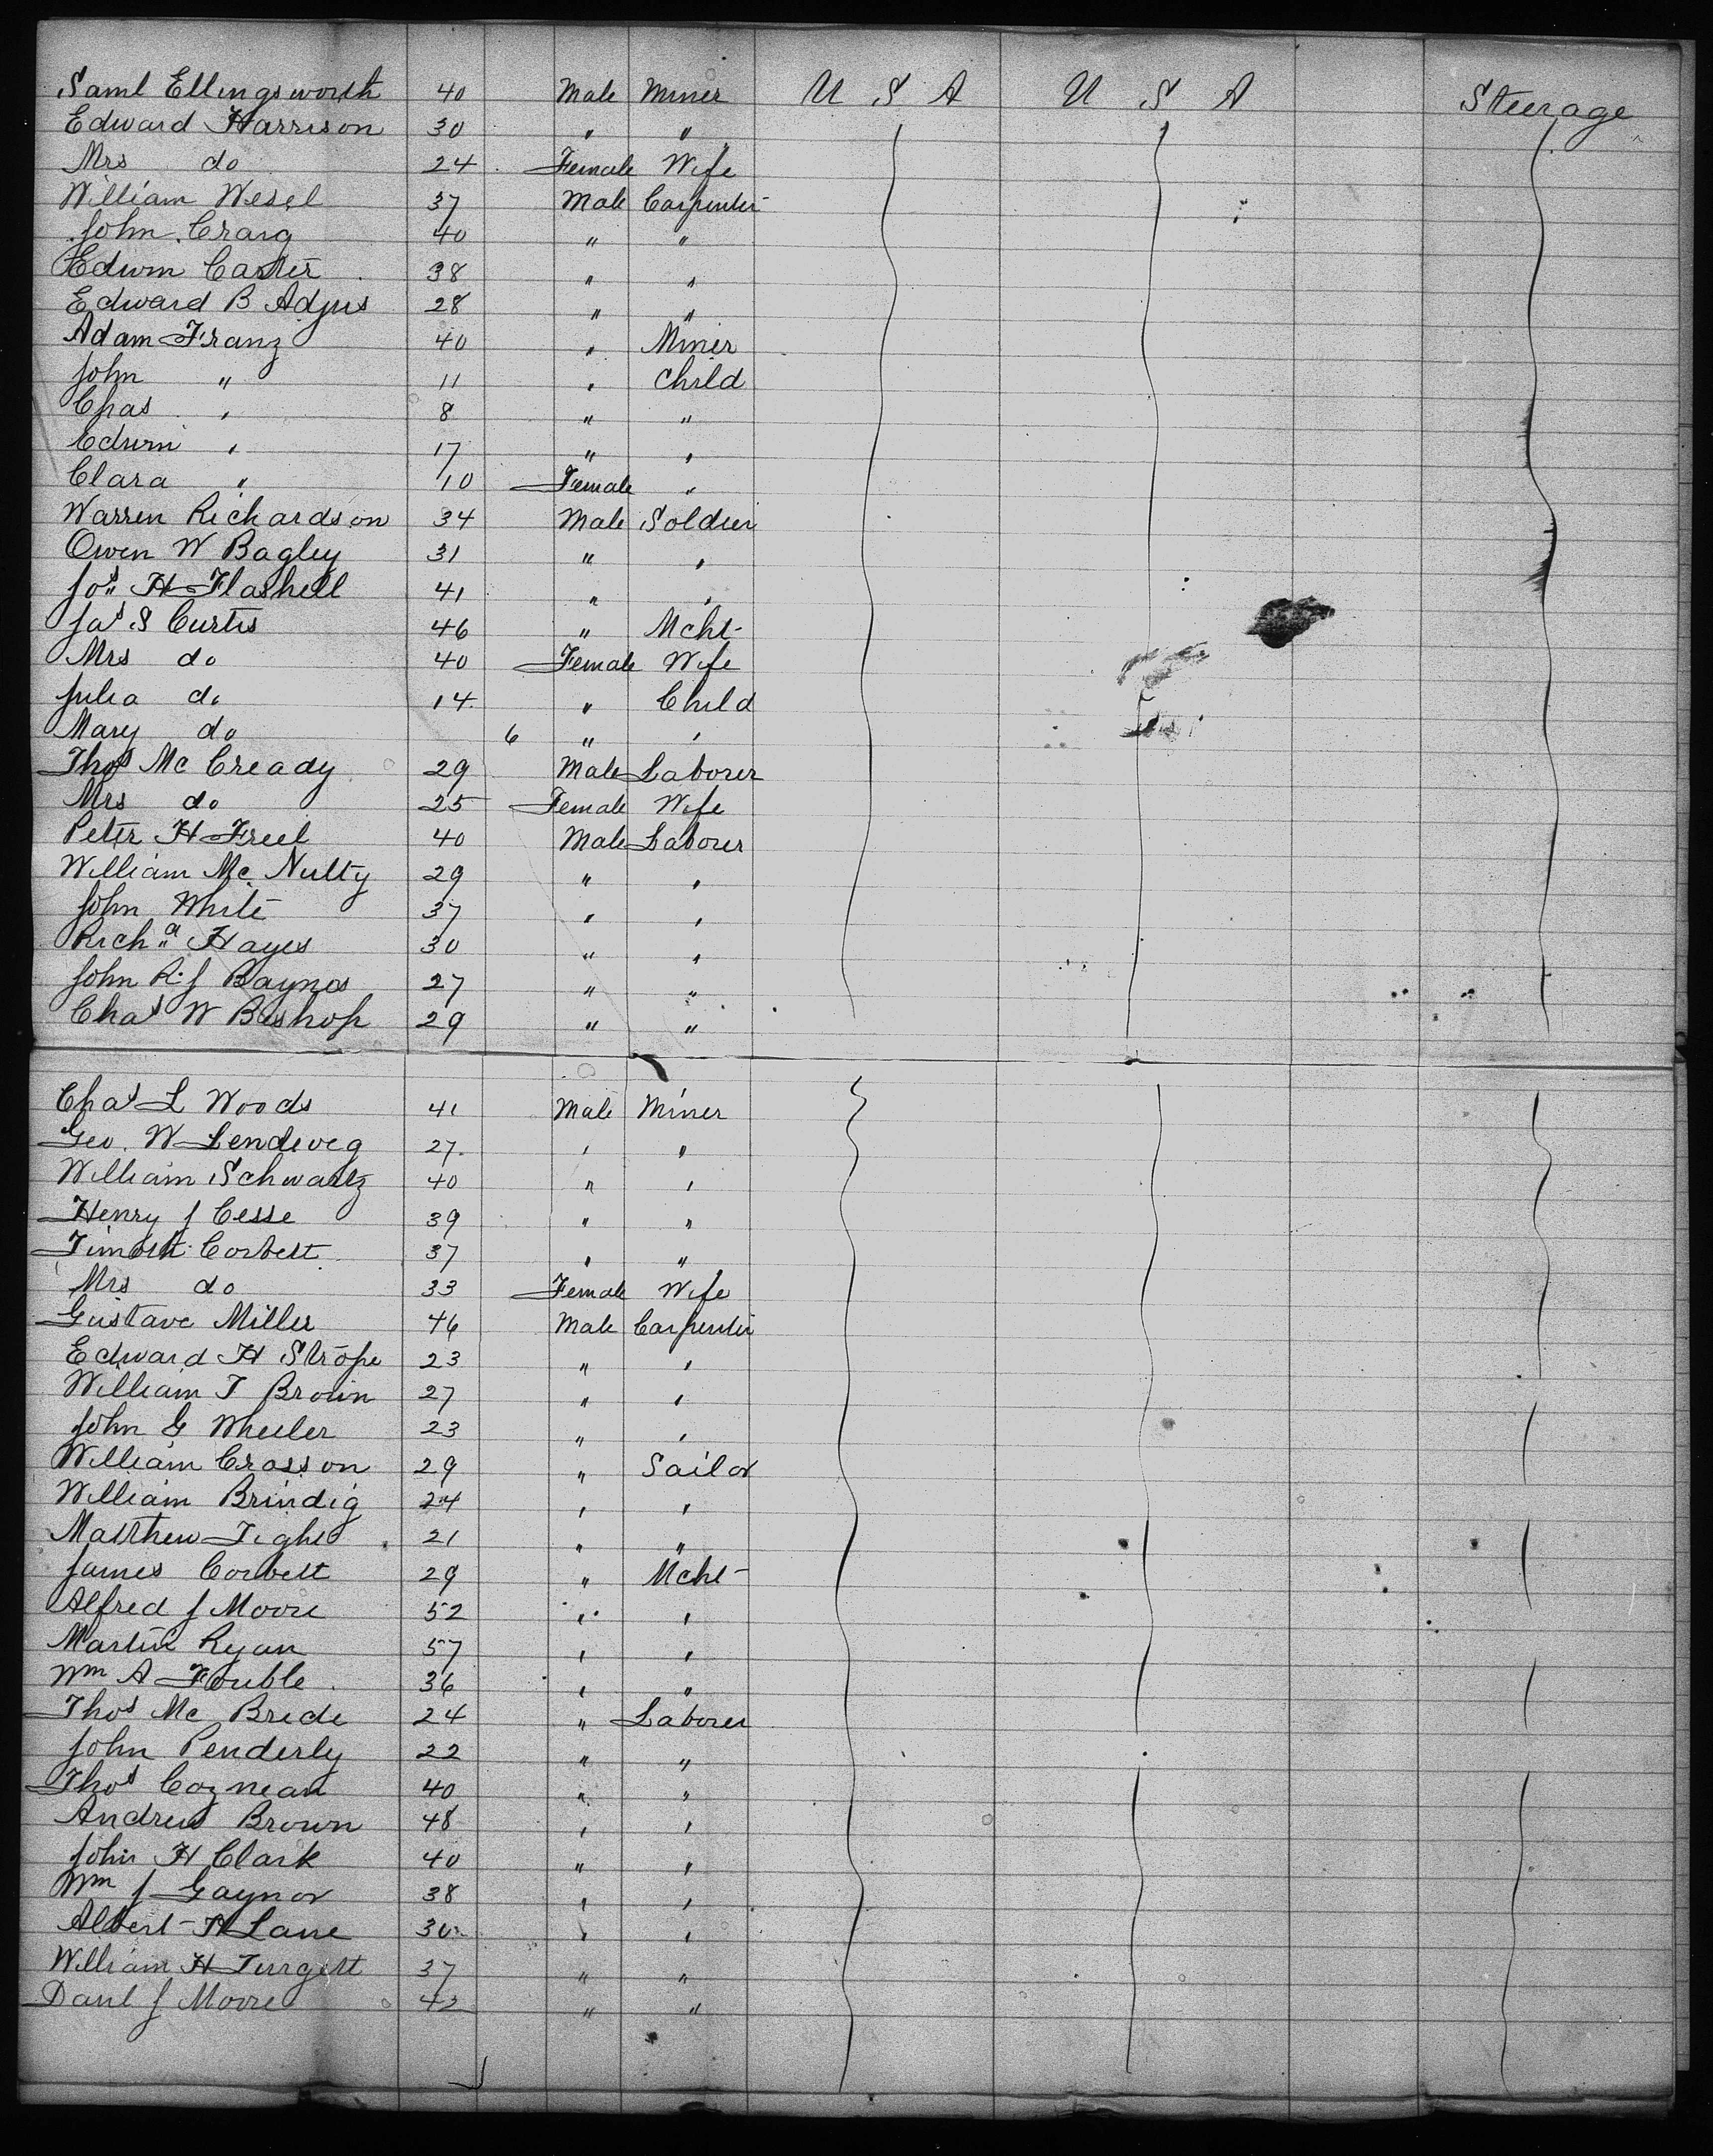 Saml Ellingsworth 40 Male Miner U S A U S A Steerage
Edward Harrison 30 " "
Mrs do 24 Female Wife
William Wesel 37 Male Carpenter
John Craig 40 " "
Edwin Carter 38 " "
Edward B Adjus 28 " "
Adam Franz 40 " Miner
John " 11 " Child
Chas " 8 " "
Edwin " 17 " "
Clara " 10 Female "
Warren Richardson 34 Male Soldier
Owen W Bagley 31 " "
Jos H Flashell 41 " "
Jas S Curtis 46 " Mcht
Mrs do 40 Female Wife
Julia do 14 " Child
Mary do 6 " "
Thos Mc Cready 29 Male Laborer
Mrs do 25 Female Wife
Peter H Freel 40 Male Laborer
William Mc Nulty 29 " "
John White 37 " "
Richd Hayes 30 " "
John R. J Baynes 27 " "
Chas W Bishop 29 " "
Chas L Woods 41 Male Miner
Geo. W Lendeveg 27 " "
William Schwartz 40 " "
Henry J Cesse 39 " "
Timoth Corbett 37 " "
Mrs do 33 Female Wife
Gustave Miller 46 Male Carpenter
Edward H Strope 23 " "
William T Broun 27 " "
John G Wheeler 23 " "
William Crosson 29 " Sailor
William Brindig 24 " "
Matthew Tighe 21 " "
James Corbett 29 " Mcht
Alfred J Moore 52 " "
Martin Ryan 57 " "
Wm A Fouble 36 " "
Thos Mc Bride 24 " Laborer
John Penderly 22 " "
Thos Coznean 40 " "
Andrew Brown 48 " "
John H Clark 40 " "
Wm J Gaynor 38 " "
Albert H Lane 30 " "
William H Turgett 37 " "
Danl J Moore 42 " "